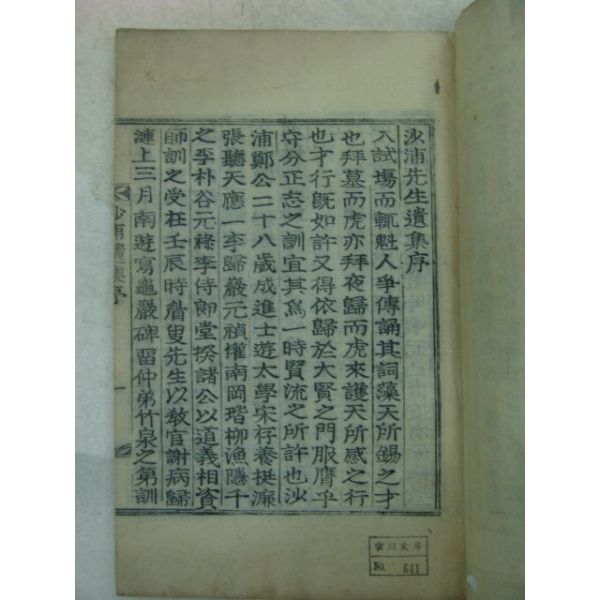 沙浦先生遺集序
入試場而輒魁人爭傳誦其詞藻天所錫之才
也拜墓而虎亦拜夜歸而虎來護天所感之行
也才行旣如許又得依歸於大賢之門服膺乎
守分正志之訓宜其爲一時賢流之所許也沙
浦鄭公二十八歲成進士遊太學宋存養挺濂
張聽天應一李歸巖元禎權南岡瑎柳漁隱千
之李朴谷元祿李侍郞堂揆諸公以道義相資
師訓之受枉壬辰時眉叟先生以敎官謝病歸
漣上三月南遊寫龜巖碑留仲弟竹泉之第訓
沙浦遺集序
一
川文庫
No. 641